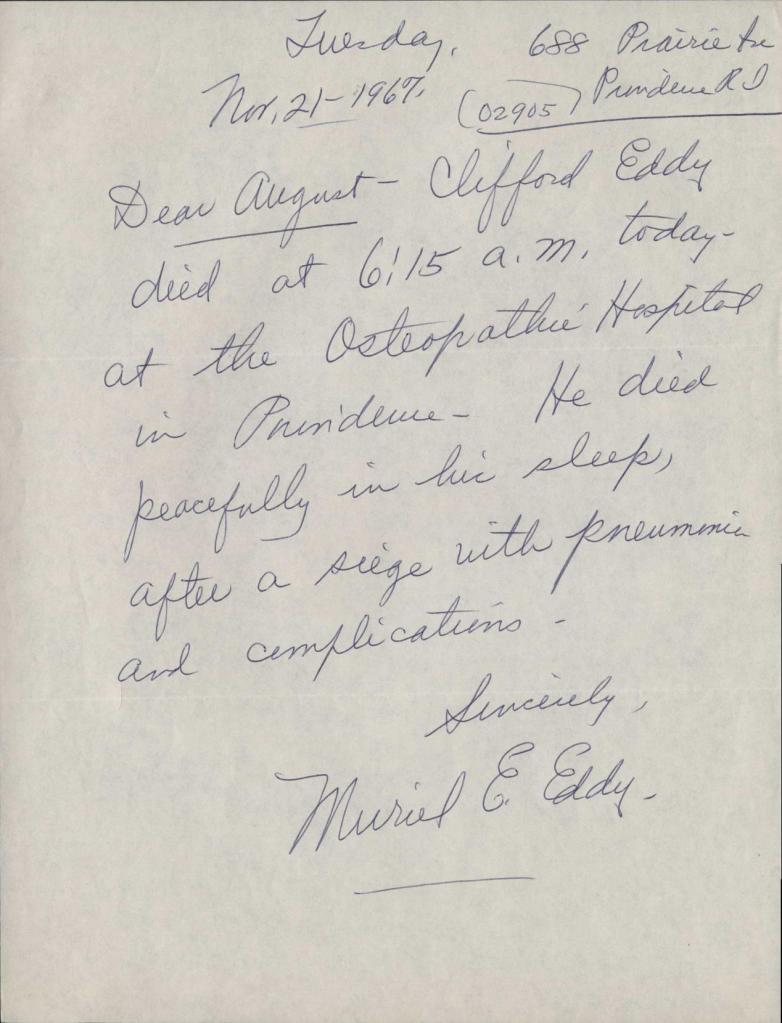 Tuesday. 688 Prairie Ave
Nov. 21-1967. (02905) Providence R I
Dear August - Clifford Eddy
died at 6:15 a.m. today-
at the Osteopathic Hospital
in Providence - He died
peacefully in his sleep,
after a siege with pneumonia
and complications -
Sincerely,
Muriel E. Eddy -